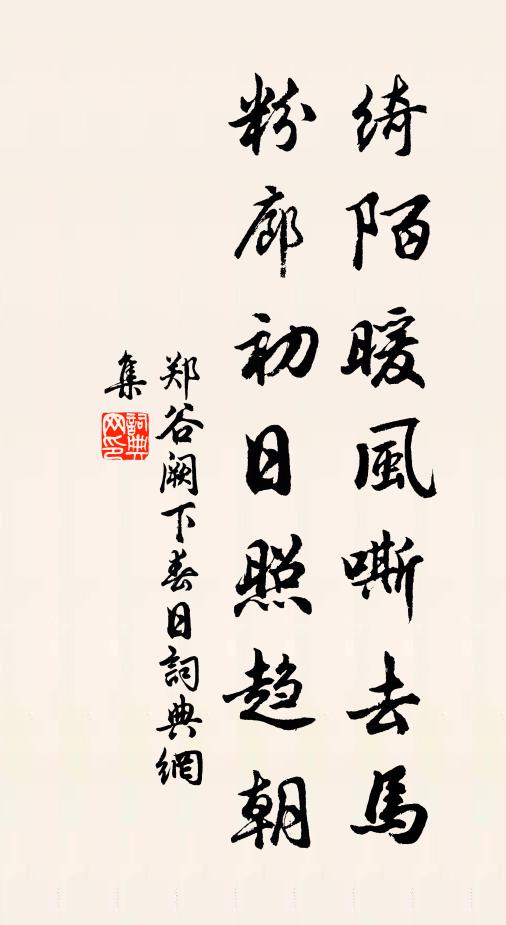 绮陌暖風嘶去馬
粉廊初日照趋朝
郑谷阙下春日詞典網
集
詞典
网印